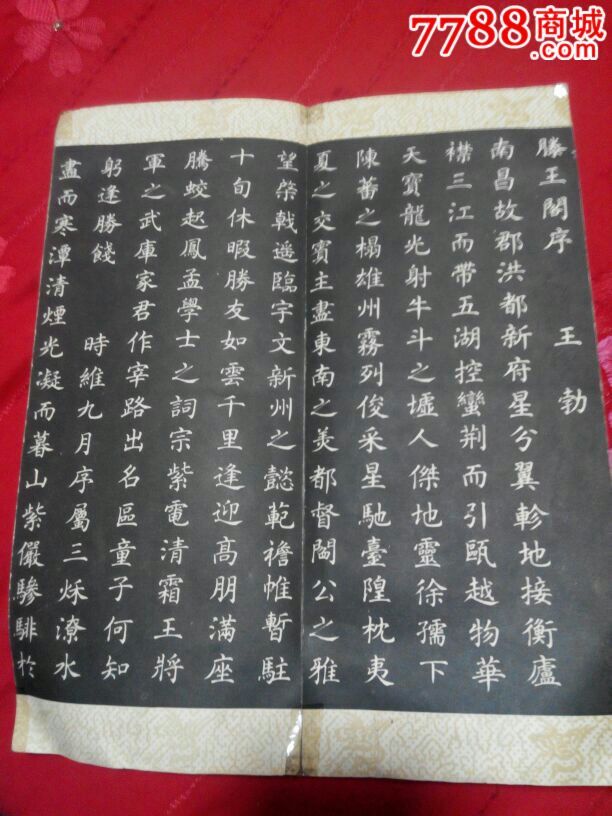 7788商城
.com
滕王閣序 王勃
南昌故郡洪都新府星分翼軫地接衡廬
襟三江而帶五湖控蠻荊而引甌越物華
天寶龍光射牛斗之墟人傑地靈徐孺下
陳蕃之榻雄州霧列俊采星馳臺隍枕夷
夏之交賓主盡東南之美都督閻公之雅
望棨戟遥臨宇文新州之懿範襜帷暫駐
十旬休暇勝友如雲千里逢迎髙朋滿座
騰蛟起鳳孟學士之詞宗紫電清霜王將
軍之武庫家君作宰路出名區童子何知
躬逢勝餞 時維九月序屬三秌潦水
盡而寒潭清煙光凝而暮山紫儼驂騑於